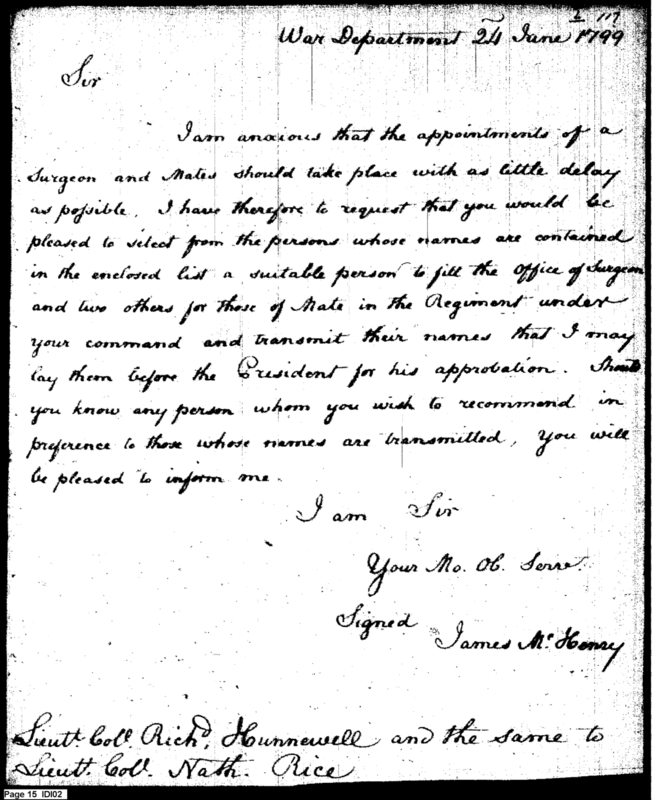 117
War Department 24 June 1799
Sir
I am anxious that the appointments of a
Surgeon and Mates should take place with as little delay
as possible. I have therefore to request that you would be
pleased to select from the persons whose names are contained
in the enclosed list a suitable person to fill the Office of Surgeon
and two others for those of Mate in the Regiment under
your command and transmit their names that I may
lay them before the President for his approbation. Should
you know any person whom you wish to recommend in
preference to those whose names are transmitted, you will
be pleased to inform me.
I am Sir
Your Mo. Ob. Serv.
Signed
James Mc Henry
Lieutt. Coll. Richd. Hunnewell and the same to
Lieutt. Coll. Nath. Rice
Page 15 IDI02